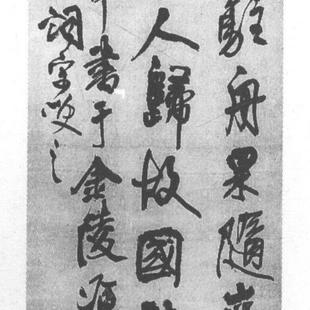 駐舟果隨
人歸故國
書于金陵
詞字
之